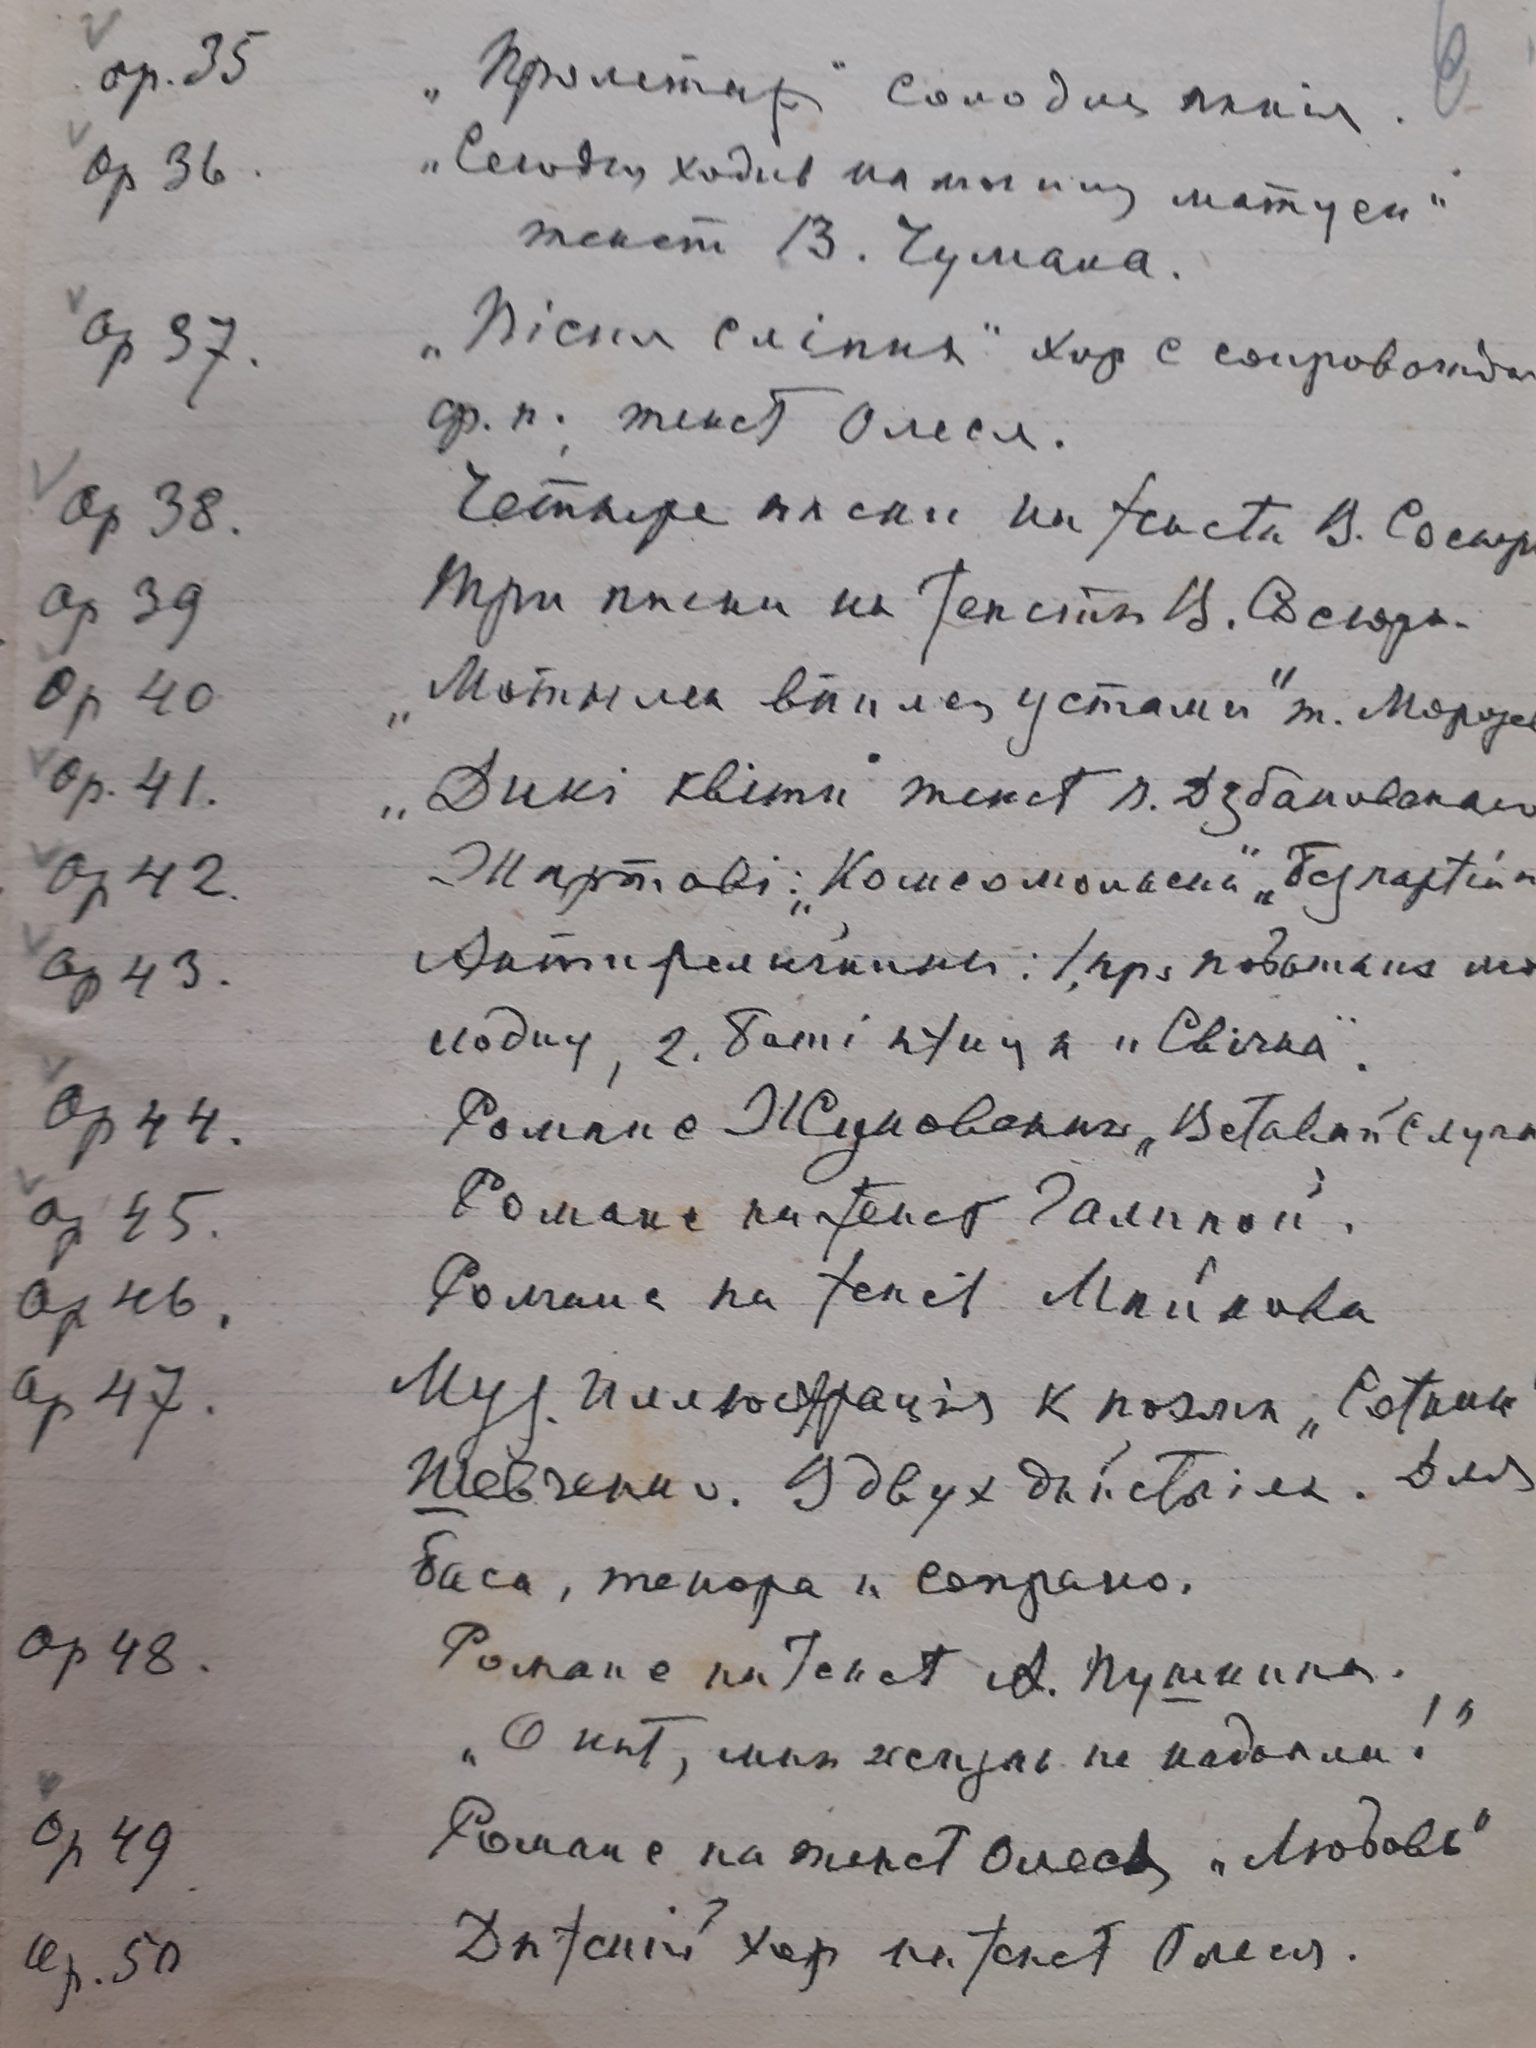 6
op. 35 „Пролетар" Соло для пінія.
Op 36. „Сегодня ходив на могилу матуси"
текст В. Чумака.
Op 37. „Пісня сліпих" хор с сопровожден
ф.п., текст Олеся.
Op 38. Четыре песни на текста В. Сосюры
Op 39 Три песни на тексты В. Сосюры.
Op 40 „Мотылек впился устами" т. Морозов
Op. 41. „Дикі квіти" текст Дзбановского
Op 42. Жартові: „Комсомольська" „Безпартійн
Op 43. Антирелигійни: 1,
2. „Свічка".
Op 44. Романс Жуковского „Вставай
Op 45. Романс на текст Галиной.
Op 46. Романс на текст Майкова
Op 47. Муз. Иллюстрація к поэмы „Сотник"
Шевченко. У двух дійствіях. Для
баса, тенора и сопрано.
Op 48. Романс на текст А. Пушкина.
„О нет, мне жизнь не надоела!"
Op 49 Романс на текст Олеся „Любовь"
Op. 50 Дѣтскій хор на текст Олеся.